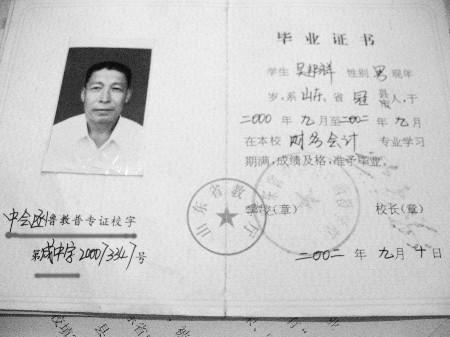 毕业证书
学生 吴邦祥 性别 男 现年
岁，系 山东 省 冠 县 人，于
2000 年 九 月至 二00二 年 九 月
在本校 财务会计 专业学习
期满，成绩及格，准予毕业。
学校(章) 校长(章)
山东省教育厅
二00二 年 九 月 十 日
中会函 鲁教普专证校字
第 成中字20007334 号